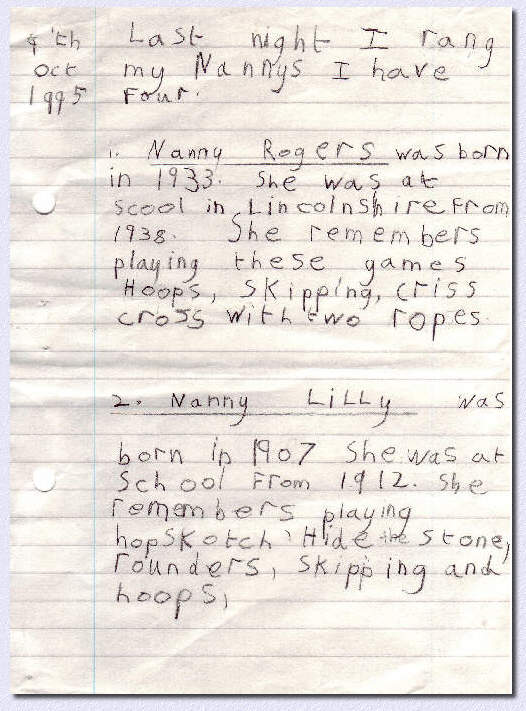 4'th Last night I rang
Oct my Nannys I have
1995 Four.
1. Nanny Rogers was born
in 1933. She was at
scool in Lincolnshire From
1938. She remembers
playing these games
Hoops, skipping, criss
cross with two ropes.
2. Nanny Lilly was
born in 1907 She was at
School From 1912. She
remembers playing
hopskotch, Hide the stone,
rounders, skipping and
hoops,